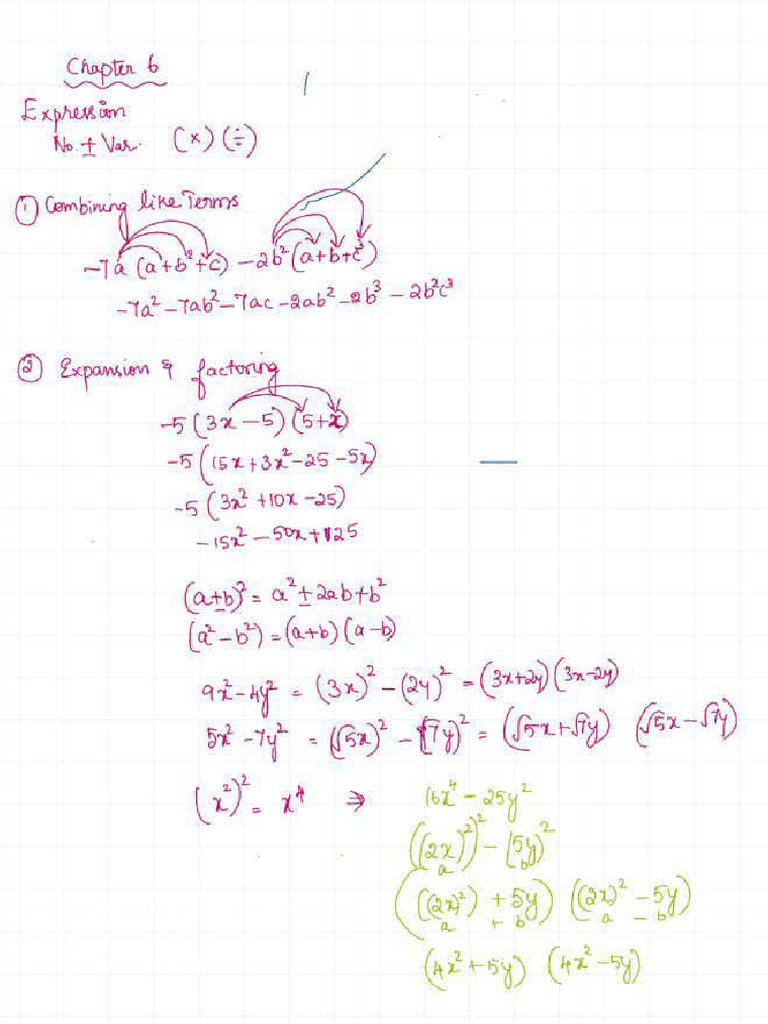 Chapter 6
Expression
No. ± Var. (×) (÷)
① Combining like Terms
-7a (a+b²+c) - 2b² (a+b+c³)
-7a² - 7ab² - 7ac - 2ab² - 2b³ - 2b²c³
② Expansion & factoring
-5 (3x - 5) (5+x)
-5 (15x + 3x² - 25 - 5x)
-5 (3x² + 10x - 25)
-15x² - 50x + 125
(a±b)² = a² ± 2ab + b²
(a² - b²) = (a+b) (a-b)
9x² - 4y² = (3x)² - (2y)² = (3x+2y) (3x-2y)
5x² - 7y² = (√5x)² - (√7y)² = (√5x + √7y) (√5x - √7y)
(x²)² = x⁴ ⇒ 16x⁴ - 25y²
((2x)²)² - (5y)²
a b
(((2x)²) + 5y) ((2x)² - 5y)
a + b a - b
(4x² + 5y) (4x² - 5y)